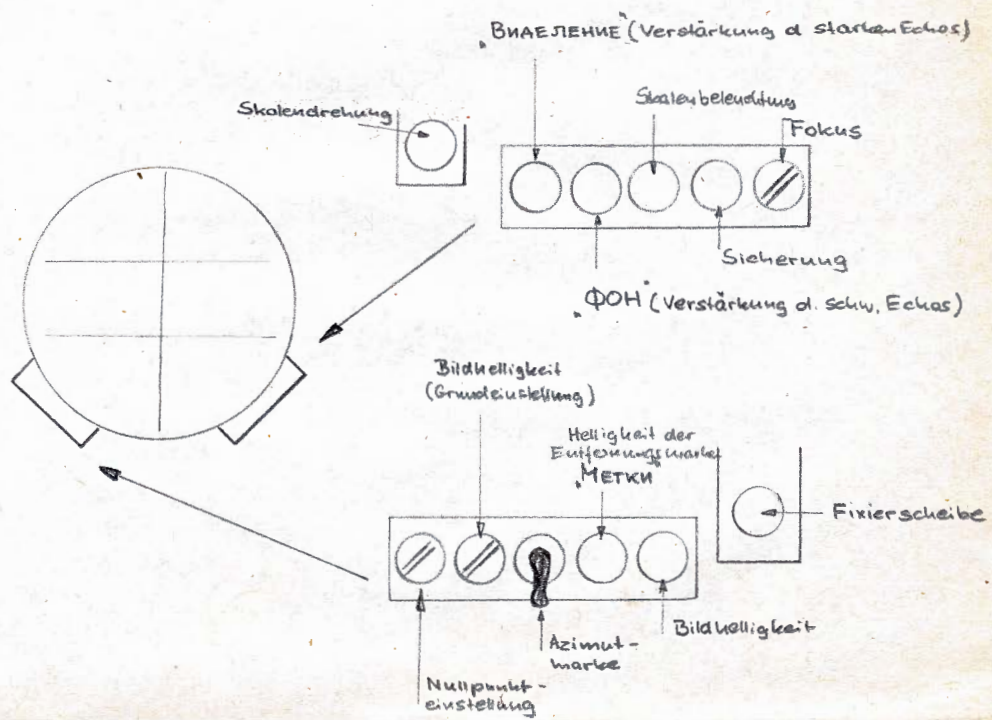 „ВИАЕЛЕНИЕ“ (Verstärkung d starken Echos)
Skalendrehung
Skalenbeleuchtung
Fokus
Sicherung
„ФОН“ (Verstärkung d. schw. Echos)
Bildhelligkeit
(Grundeinstellung)
Helligkeit der
Entfernungsmarke
„МЕТКИ“
Fixierscheibe
Bildhelligkeit
Azimut-
marke
Nullpunkt-
einstellung